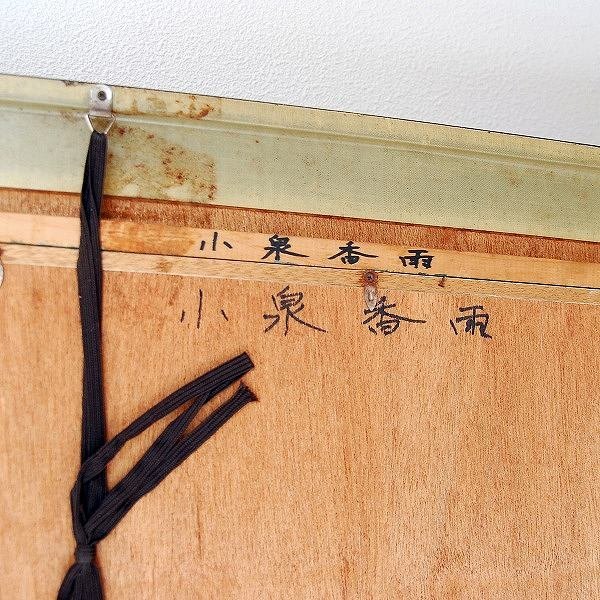 小泉香雨
小泉香雨